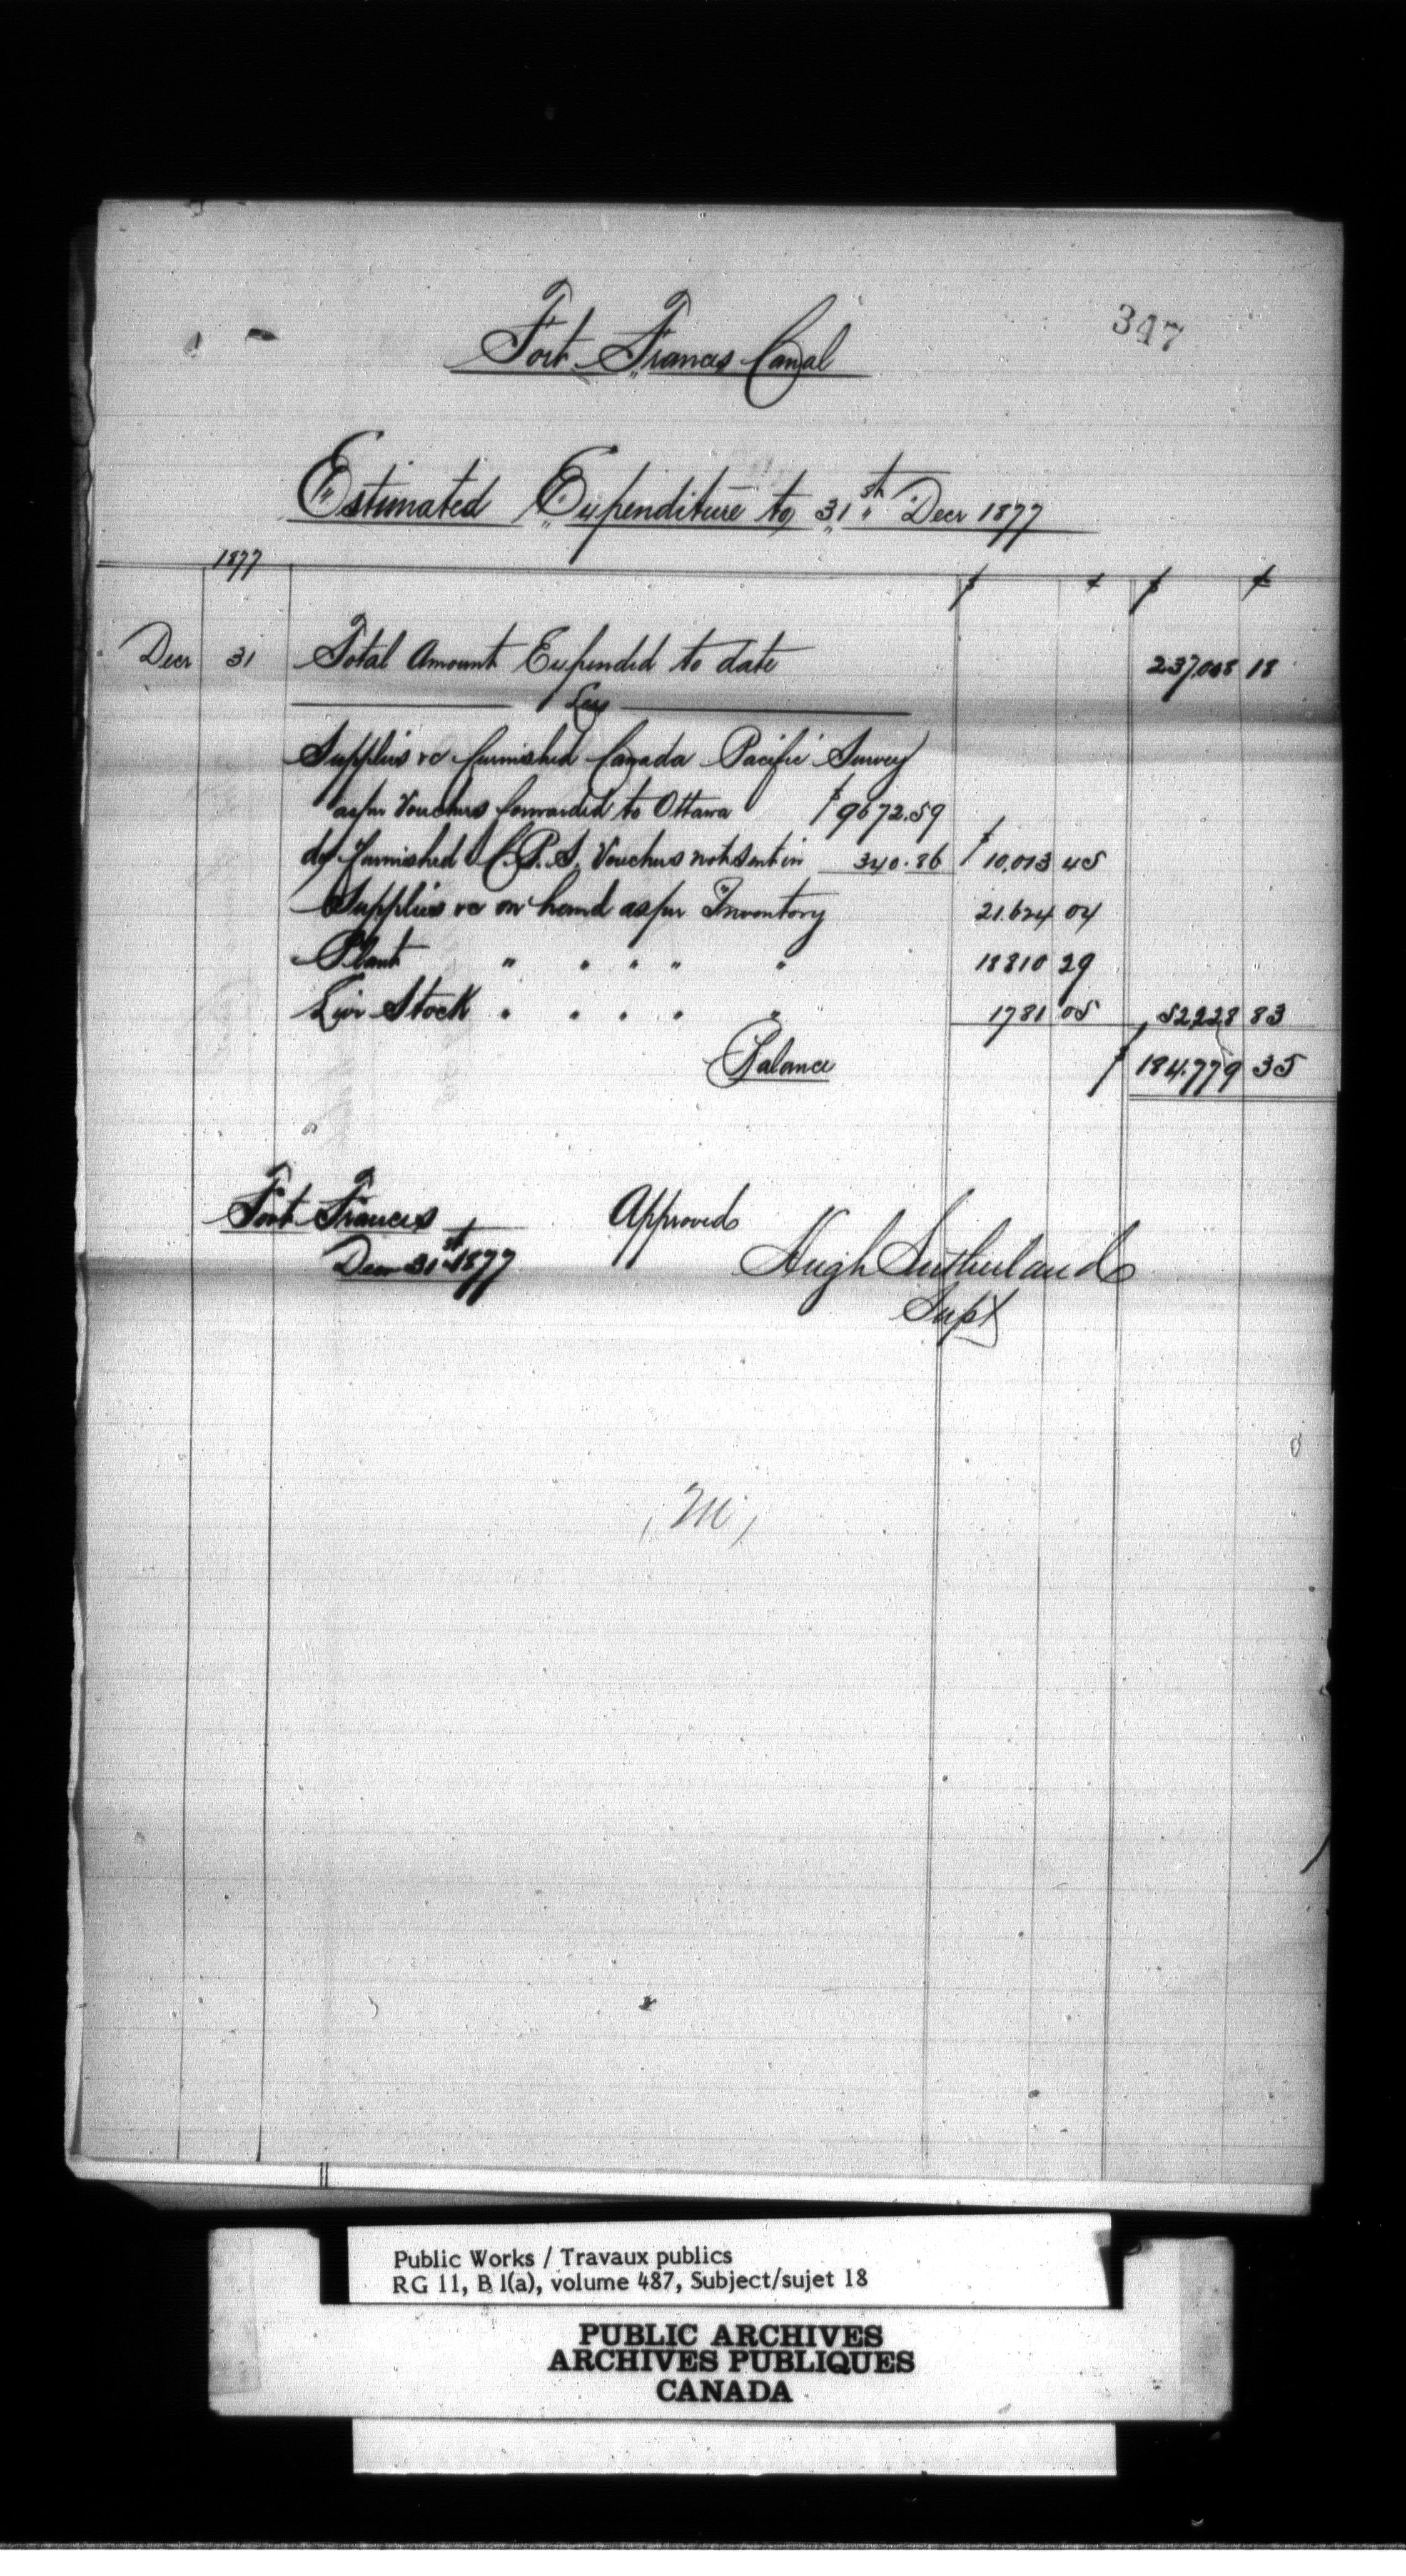 347
Fort Francis Canal
Estimated Expenditure to 31st Decr 1877
1877
$ ¢ $ ¢
Decr 31 Total Amount Expended to date 237,008 18
Less
Supplies &c furnished Canada Pacific Survey
as per Vouchers forwarded to Ottawa $9672.59
do furnished C.P.S. Vouchers not sent in 340.86 $10,013 45
Supplies &c on hand as per Inventory 21.624 04
Plant " " " " " 18810 29
Live Stock " " " " " 1781 05 52,228 83
Balance $184.779 35
Fort Francis Approved
Decr 31st 1877 Hugh Sutherland
Supt
Public Works / Travaux publics
RG 11, B 1(a), volume 487, Subject/sujet 18
PUBLIC ARCHIVES
ARCHIVES PUBLIQUES
CANADA